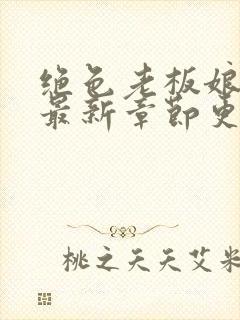 绝色老板娘
最新章节更
桃之天天艾米